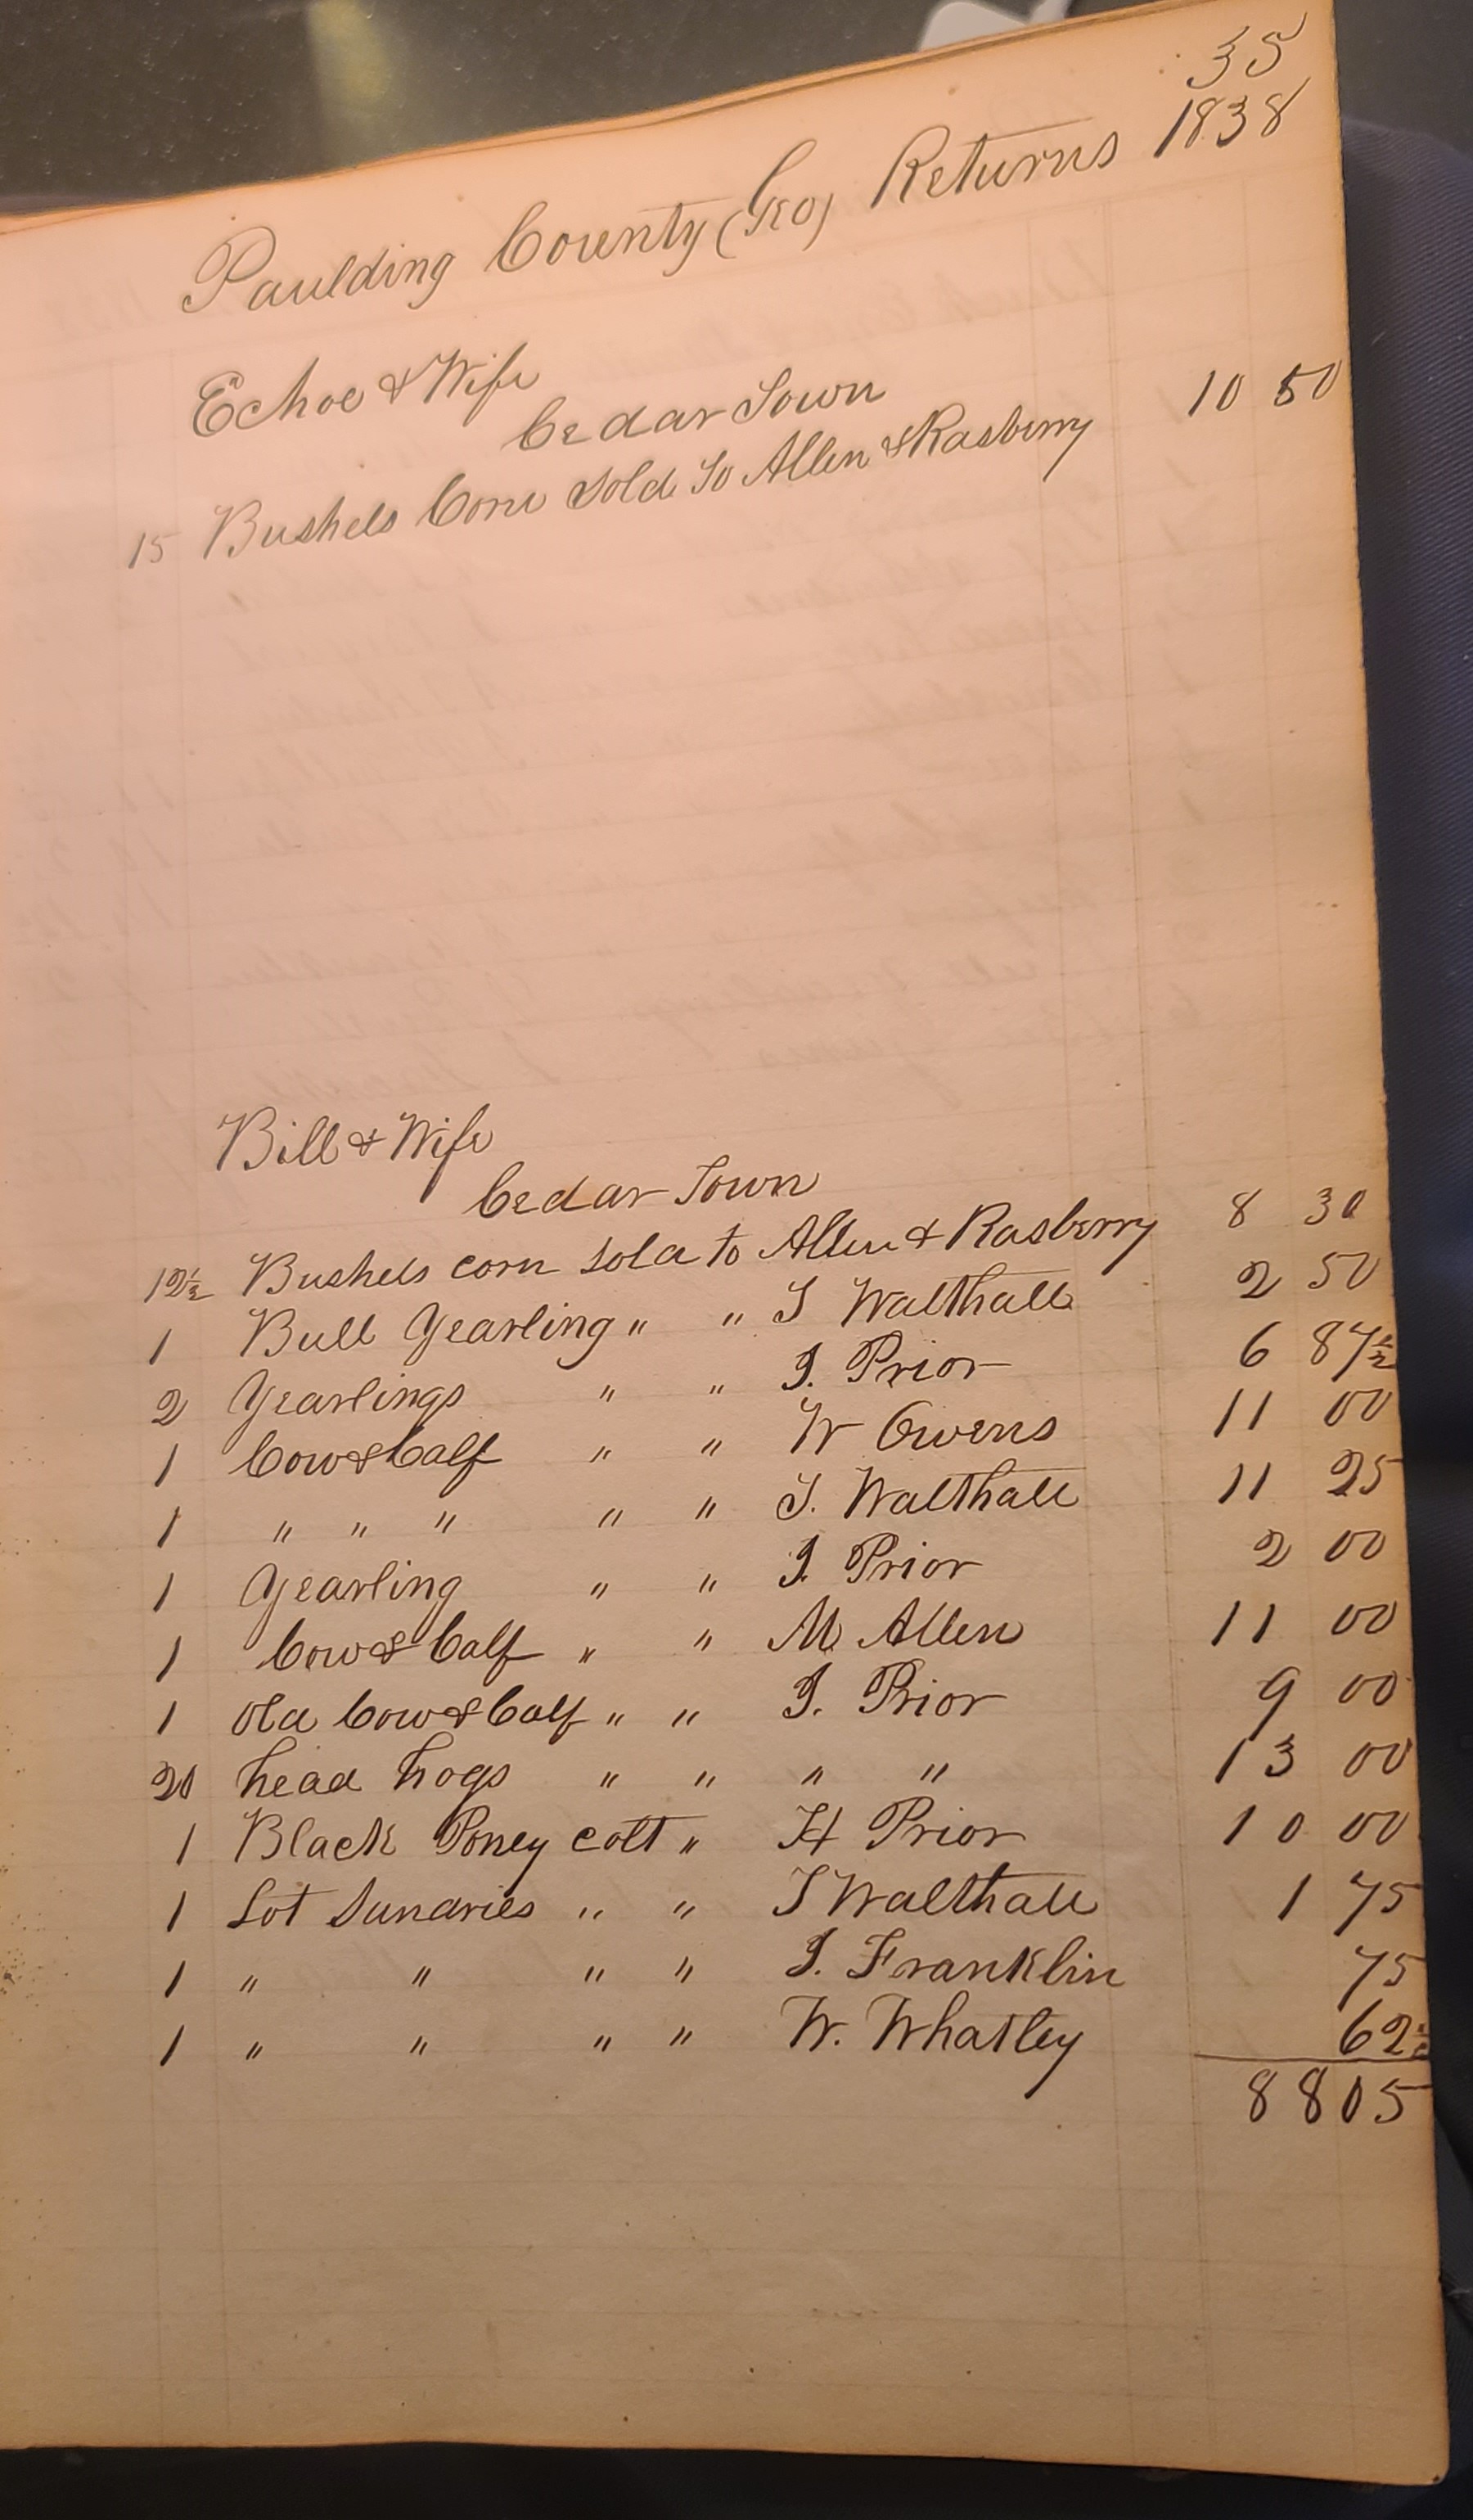 35
Paulding County (Geo) Returns 1838
Echoe & Wife
Cedar Town
15 Bushels Corn Sold To Allen & Rasberry 10 50
Bill & Wife
Cedar Town
12½ Bushels corn sold to Allen & Rasberry 8 30
1 Bull Yearling " " T Walthall 2 50
2 Yearlings " " J. Prior 6 87½
1 Cow & Calf " " W Owens 11 00
1 " " " " " T. Walthall 11 25
1 Yearling " " J. Prior 2 00
1 Cow & Calf " " M. Allen 11 00
1 Old Cow & Calf " " J. Prior 9 00
20 head hogs " " " " 13 00
1 Black Poney colt " H Prior 10 00
1 Lot Sundries " " T Walthall 1 75
1 " " " " J. Franklin 75
1 " " " " W. Whatley 62½
88 05